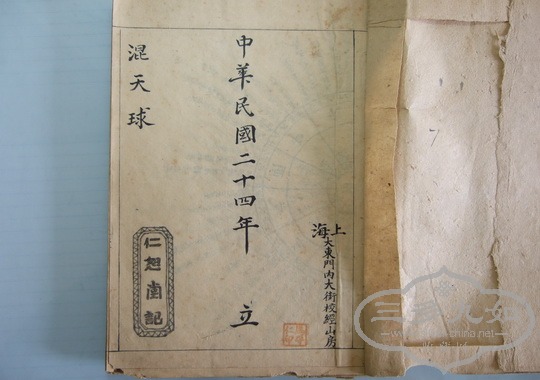 上海大東門內大街校經山房
中華民國二十四年 立
混天球
仁旭南記
7